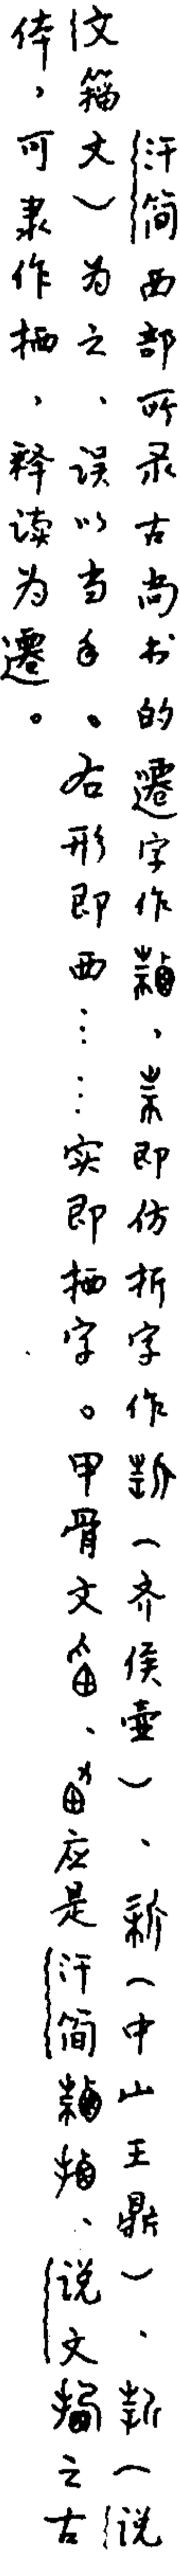 汗简西部所录古尚书的遷字作、即仿折字作（齐侯壶）、（中山王鼎）、（说
文籀文）为之、误以当手。右形即西……实即栖字。甲骨文、应是汗简、说文之古
体，可隶作栖，释读为遷。